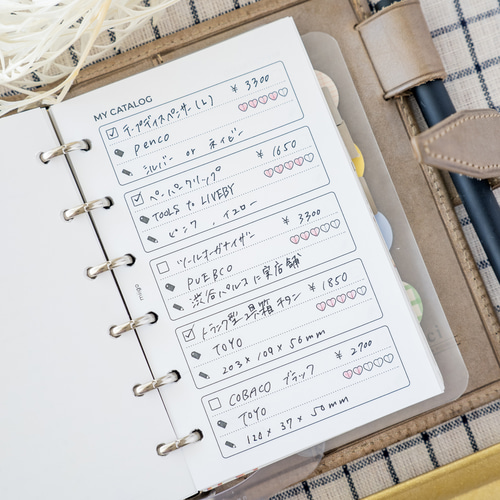 MY CATALOG
テープディスペンサー(L) ¥3300
penco
シルバー or ネイビー
ペーパークリップ ¥1650
TOOLS to LIVEBY
ピンク、イエロー
ツールオーガナイザー ¥3300
PUEBCO
渋谷パルコに実店舗
トランク型工具箱 チタン ¥1850
TOYO
203×109×56mm
COBACO ブラック ¥2700
TOYO
120×37×50mm